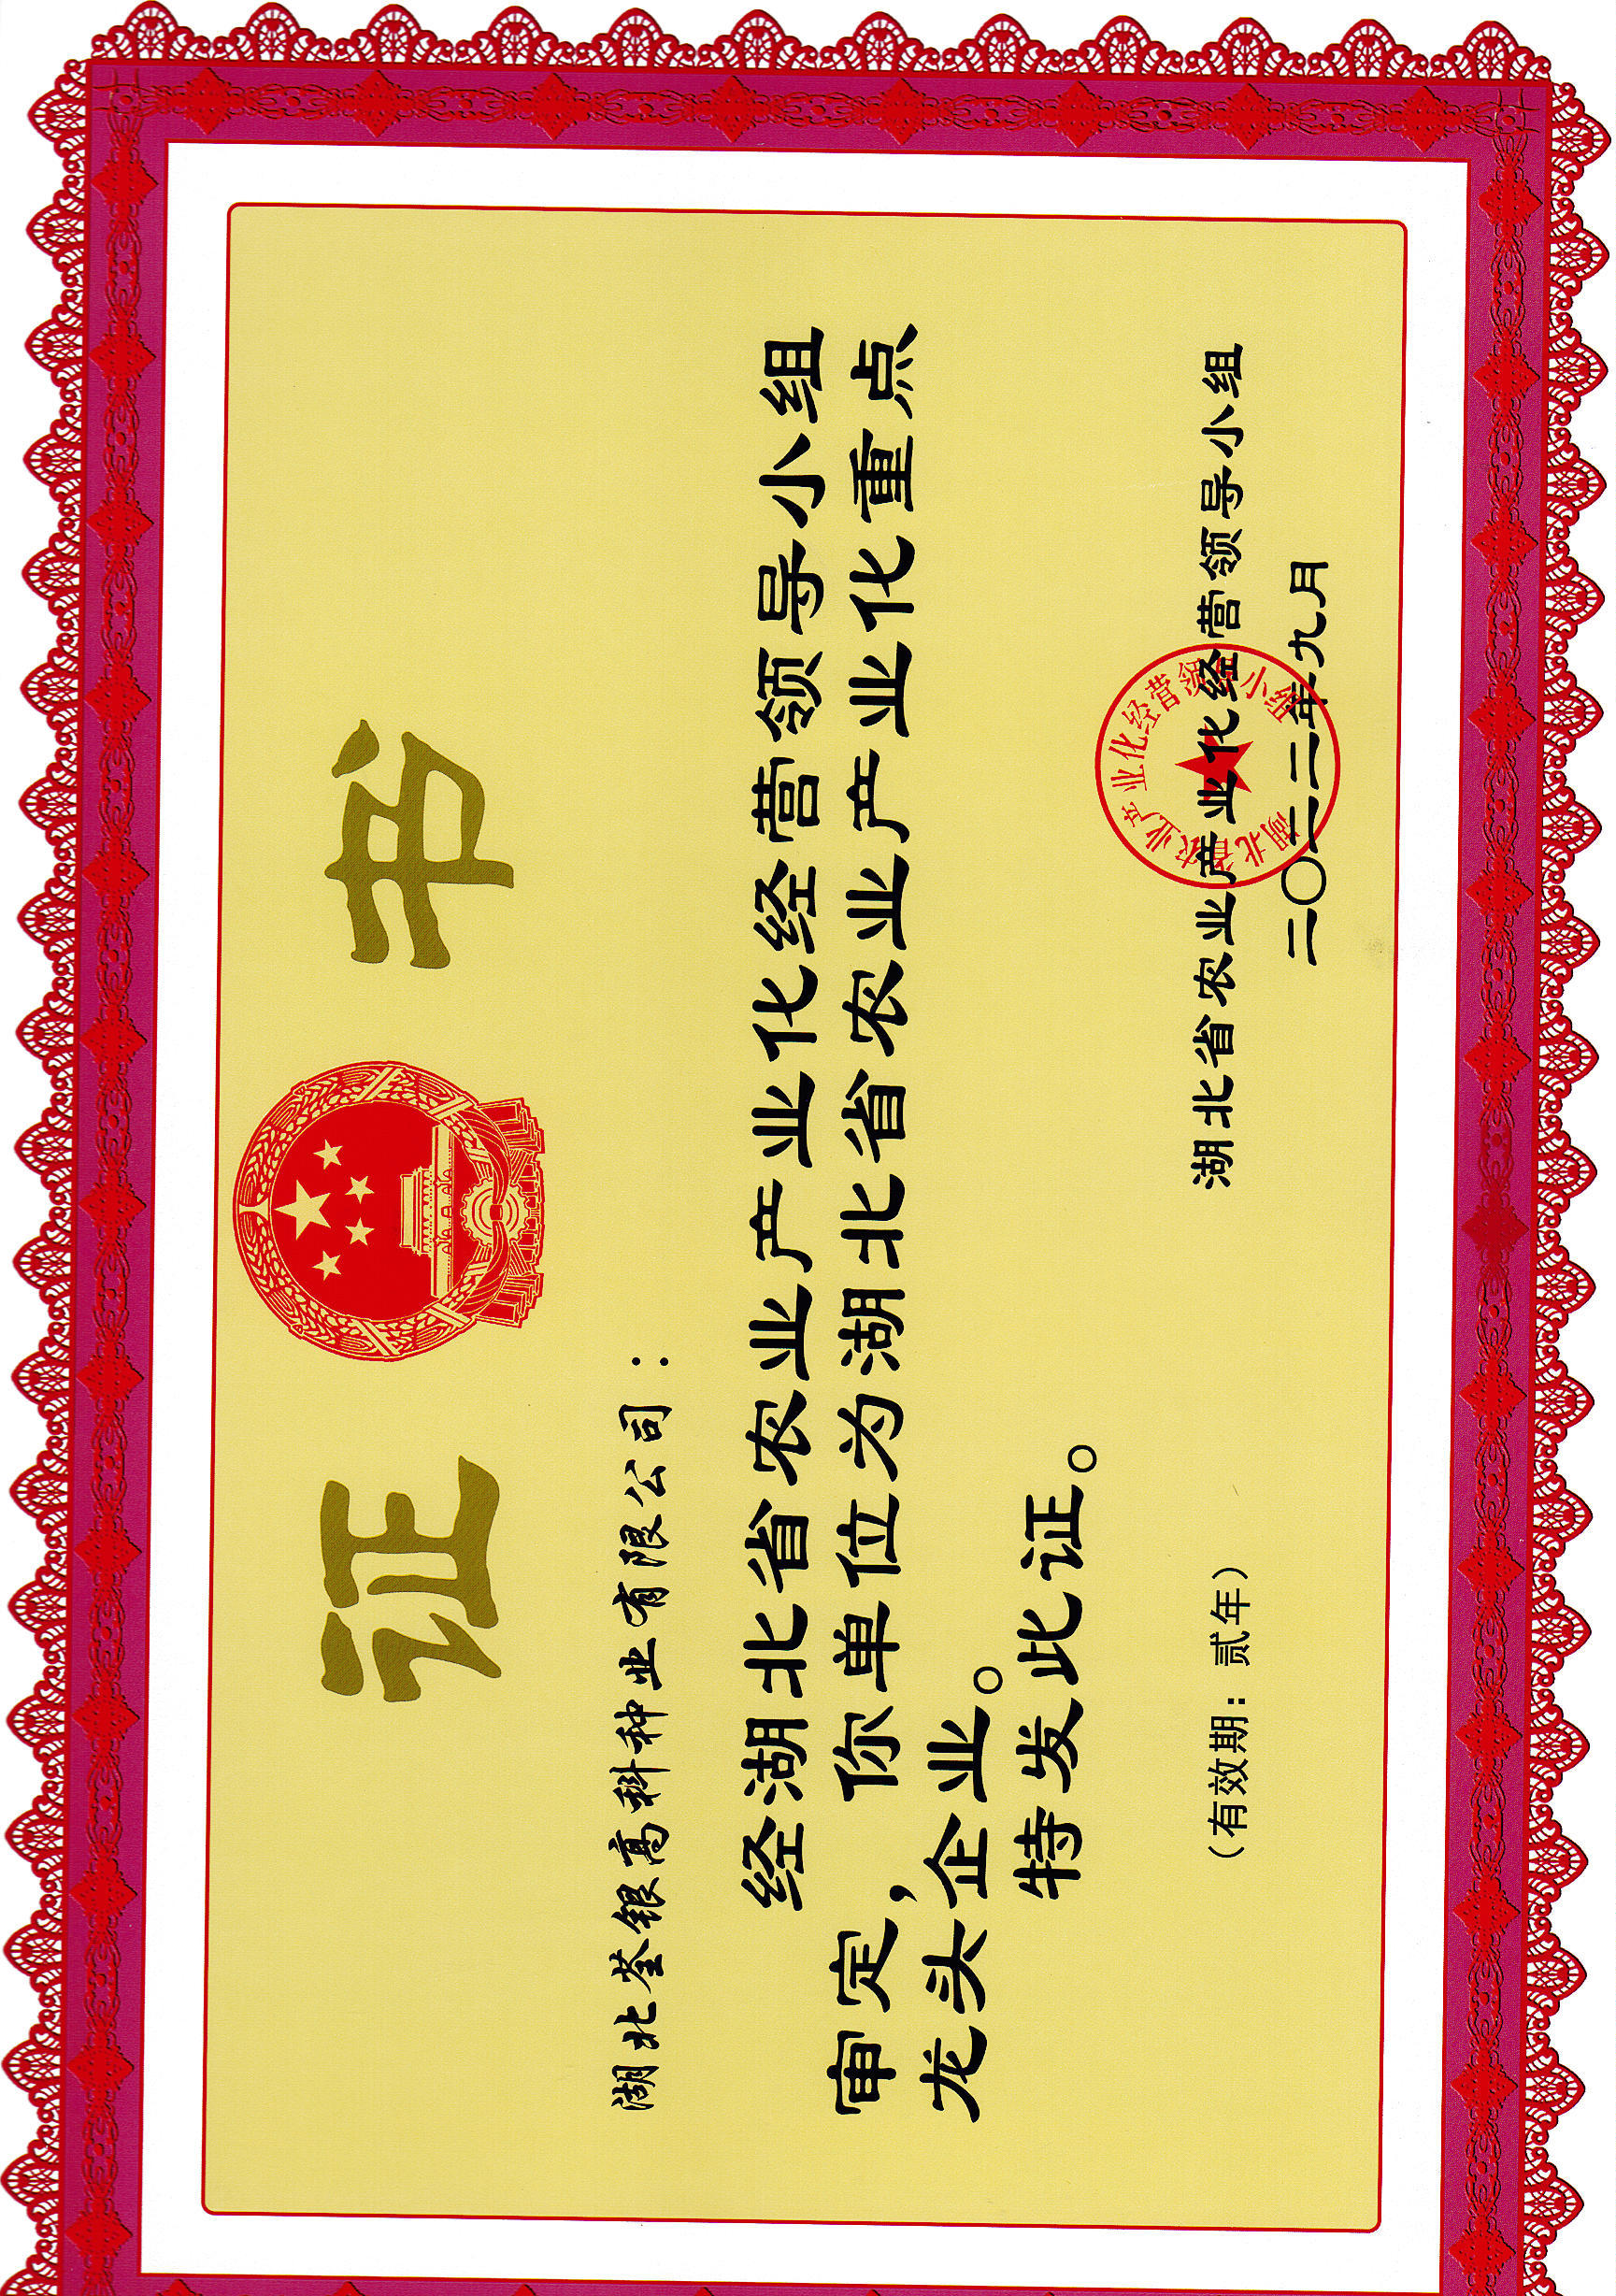 证 书
湖北荃银高科种业有限公司：
经湖北省农业产业化经营领导小组
审定，你单位为湖北省农业产业化重点
龙头企业。
特发此证。
（有效期：贰年）
湖北省农业产业化经营领导小组
二〇二二年九月
湖北省农业产业化经营领导小组